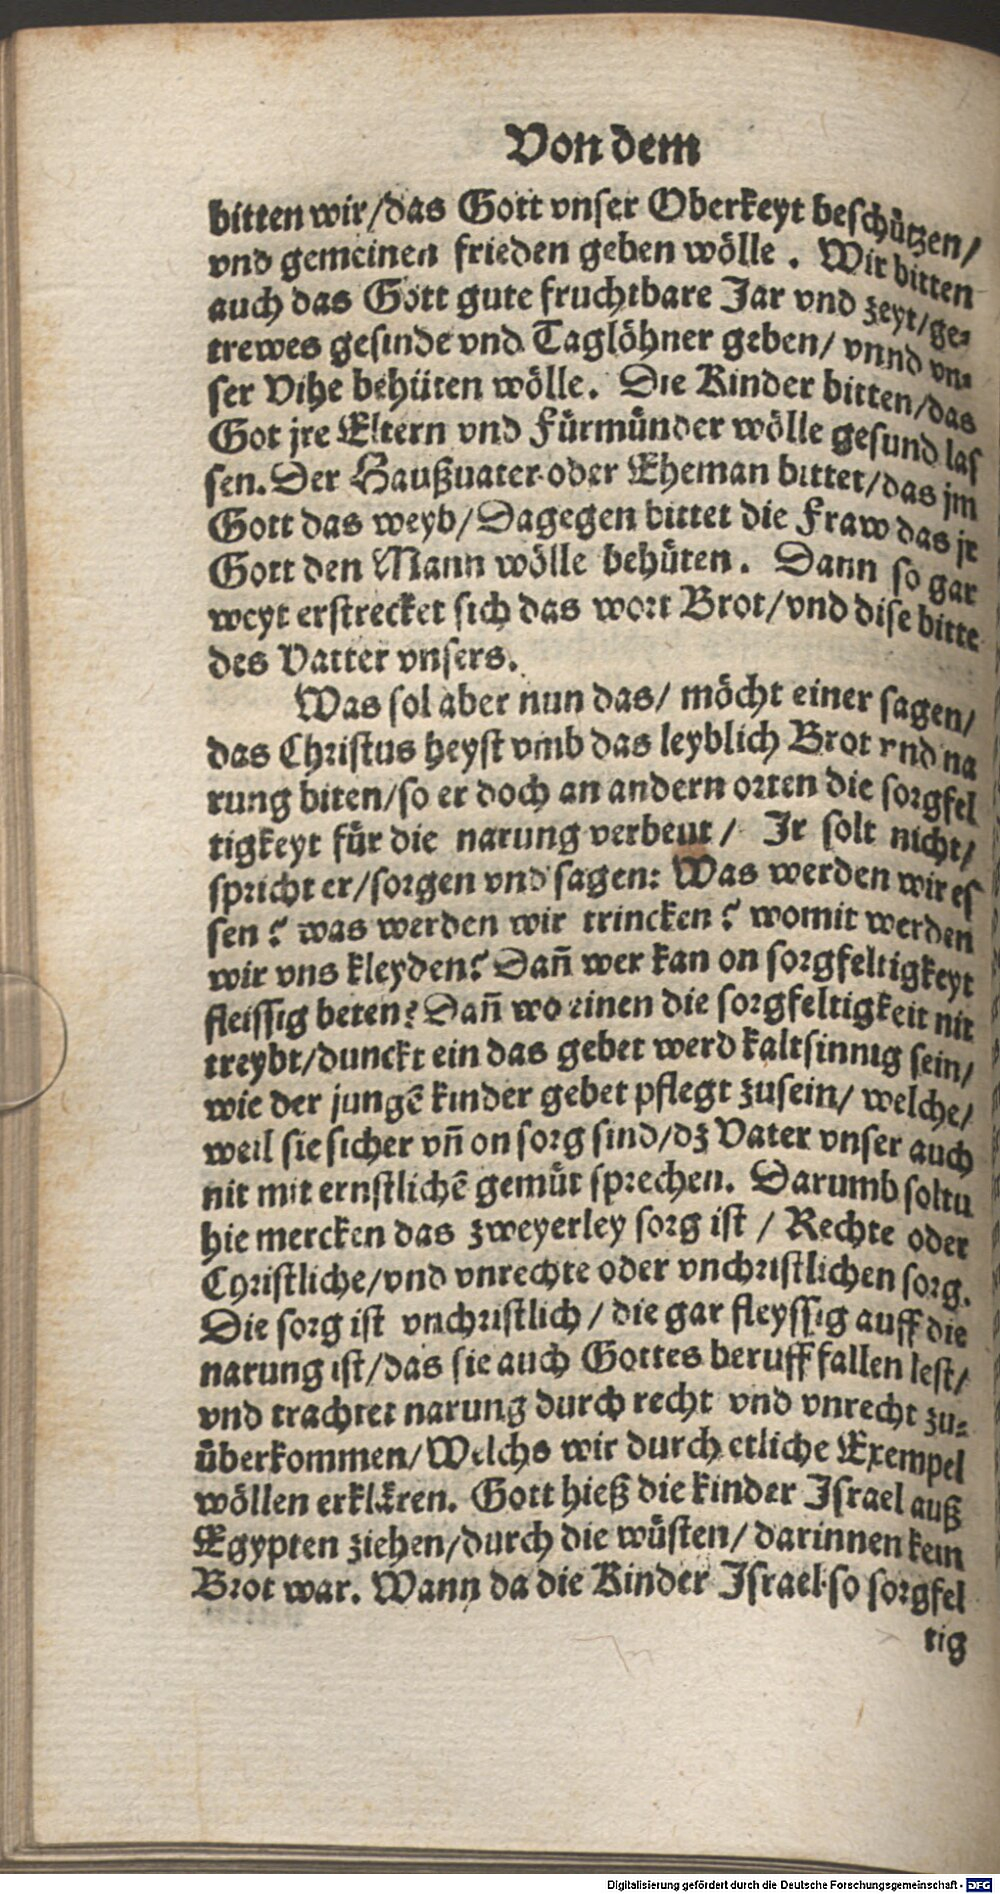 Von dem
bitten wir/das Gott vnser Oberkeyt beschützen/
vnd gemeinen frieden geben wölle. Wir bitten
auch das Gott gute fruchtbare Jar vnd zeyt/ge⸗
trewes gesinde vnd Taglöhner geben/ vnnd vn⸗
ser Vihe behüten wölle. Die Kinder bitten/das
Got jre Eltern vnd Fürmünder wölle gesund las
sen. Der Haußuater oder Eheman bittet/das jm
Gott das weyb/ Dagegen bittet die Fraw das jr
Gott den Mann wölle behüten. Dann so gar
weyt erstrecket sich das wort Brot/vnd dise bitte
des Vatter vnsers.
Was sol aber nun das/ möcht einer sagen/
das Christus heyst vmb das leyblich Brot vnd na
rung biten/so er doch an andern orten die sorgfel
tigkeyt für die narung verbeut/ Jr solt nicht/
spricht er/sorgen vnd sagen: Was werden wir es
sen? was werden wir trincken? womit werden
wir vns kleyden? Dañ wer kan on sorgfeltigkeyt
fleissig beten? Dañ wo einen die sorgfeltigkeit nit
treybt/dunckt ein das gebet werd kaltsinnig sein/
wie der jungē kinder gebet pflegt zusein/ welche/
weil sie sicher vñ on sorg sind/dz Vater vnser auch
nit mit ernstlichē gemüt sprechen. Darumb soltu
hie mercken das zweyerley sorg ist / Rechte oder
Christliche/vnd vnrechte oder vnchristlichen sorg.
Die sorg ist vnchristlich / die gar fleyssig auff die
narung ist/das sie auch Gottes beruff fallen lest/
vnd trachtet narung durch recht vnd vnrecht zu⸗
überkommen/Welchs wir durch etliche Exempel
wöllen erkleren. Gott hieß die kinder Israel auß
Egypten ziehen/durch die wüsten/ darinnen kein
Brot war. Wann da die Kinder Israel so sorgfel
tig
Digitalisierung gefördert durch die Deutsche Forschungsgemeinschaft - DFG